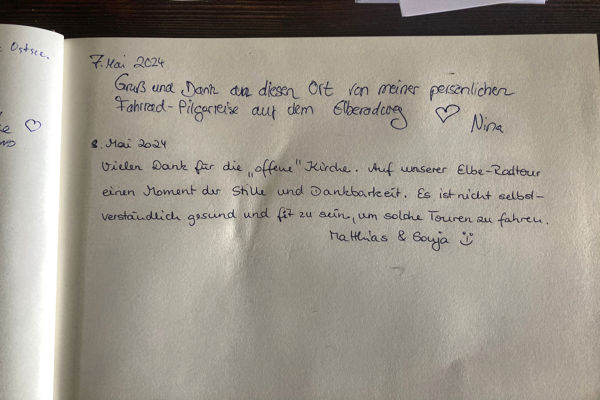 Ostsee.
7. Mai 2024
Gruß und Dank an diesen Ort von meiner persönlichen
Fahrrad-Pilgerreise auf dem Elberadweg ♡
Nina
8. Mai 2024
Vielen Dank für die „offene" Kirche. Auf unserer Elbe-Radtour
einen Moment der Stille und Dankbarkeit. Es ist nicht selbst-
verständlich gesund und fit zu sein, um solche Touren zu fahren.
Matthias & Sonja ☺